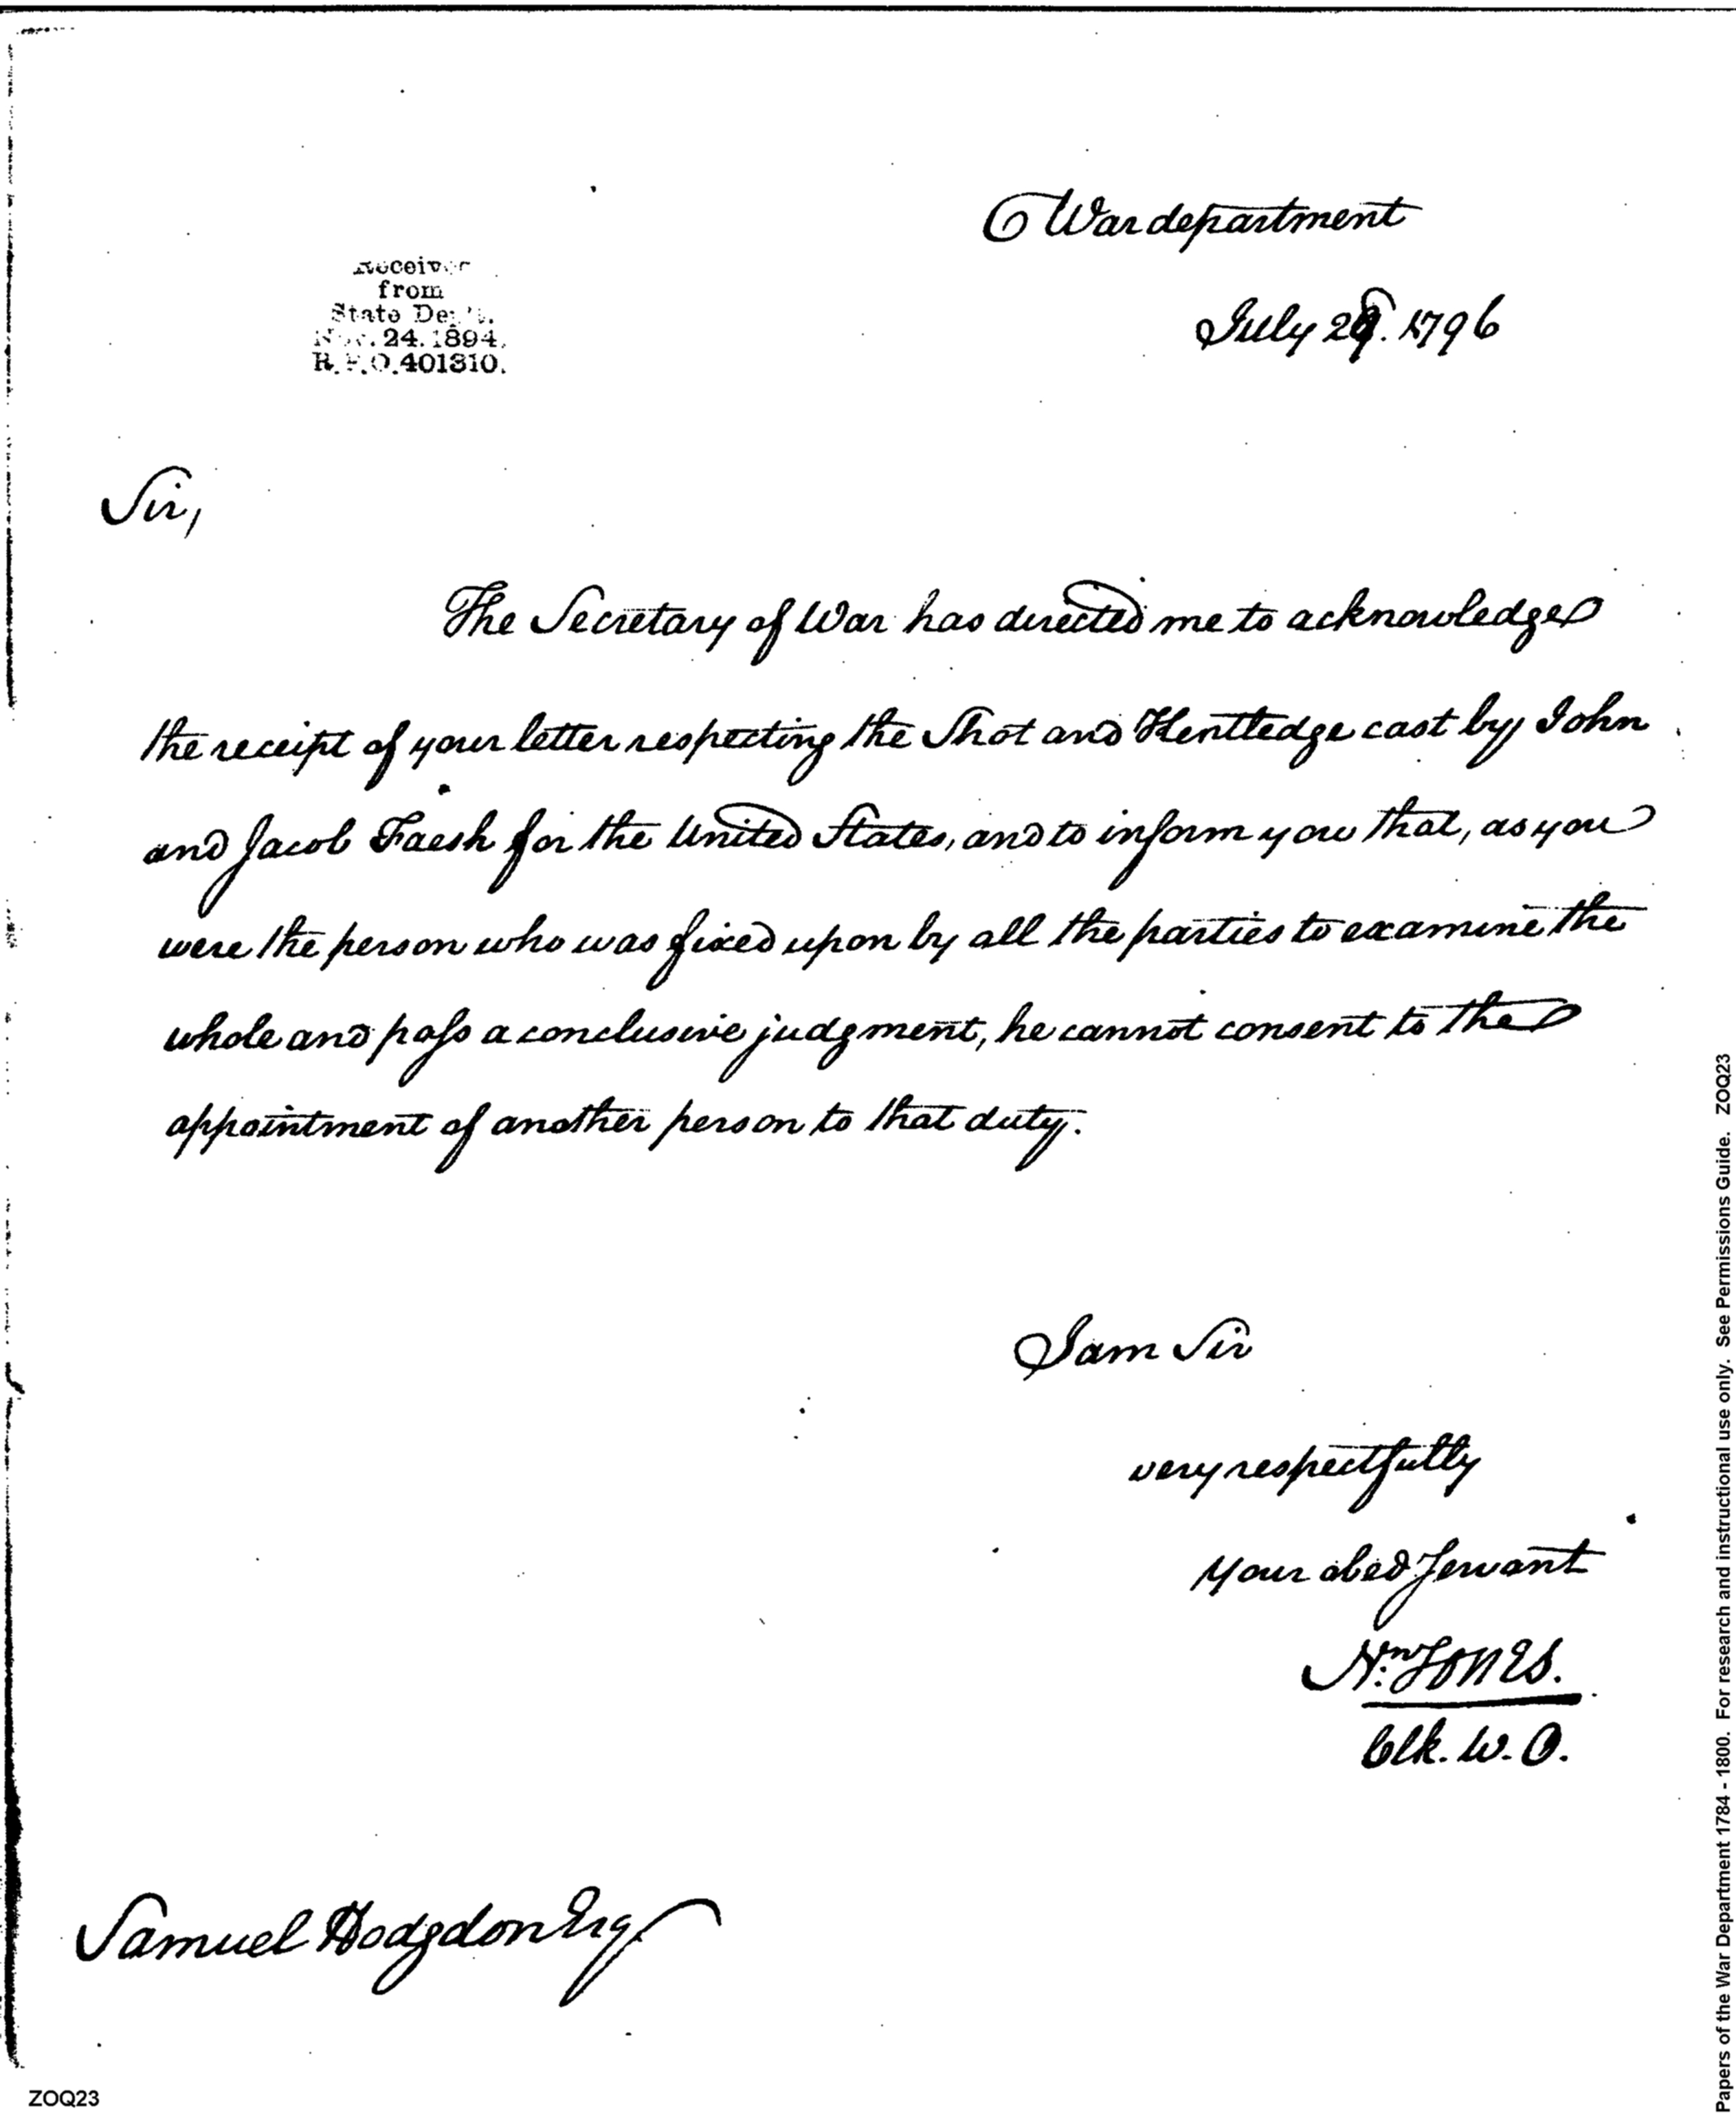 War department
July 29. 1796
Received
from
State Dep't.
Nov. 24. 1894.
R. P. O. 401310.
Sir,
The Secretary of War has directed me to acknowledge
the receipt of your letter respecting the Shot and Kentledge cast by John
and Jacob Faesh for the United States, and to inform you that, as you
were the person who was fixed upon by all the parties to examine the
whole and pass a conclusive judgment, he cannot consent to the
appointment of another person to that duty.
I am Sir
very respectfully
your obed Servant
Nn. Jones.
Clk. W. O.
Samuel Hodgdon Esq
ZOQ23
Papers of the War Department 1784 - 1800. For research and instructional use only. See Permissions Guide. ZOQ23